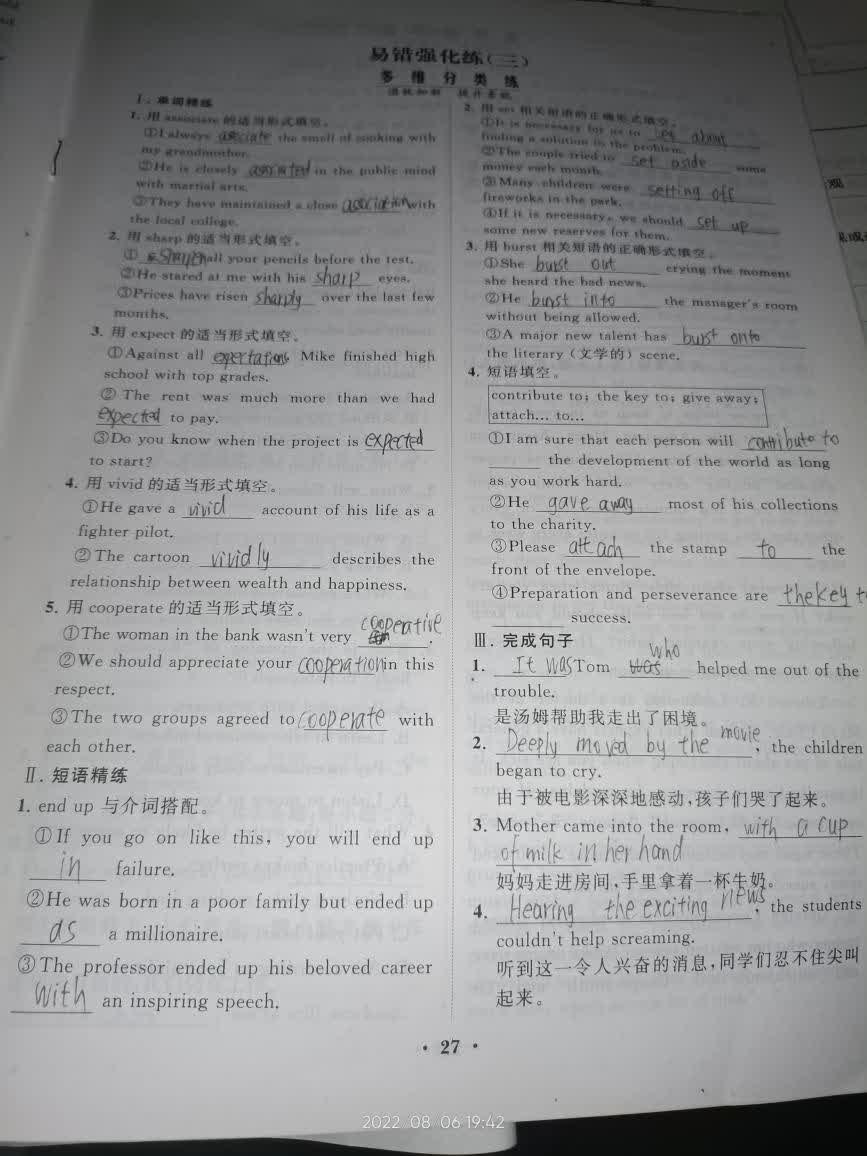 易错强化练(三)
多 维 分 类 练
Ⅰ. 单词精练
1. 用 associate 的适当形式填空。
①I always associate the smell of cooking with
my grandmother.
②He is closely associated in the public mind
with martial arts.
③They have maintained a close association with
the local college.
2. 用 sharp 的适当形式填空。
① sharpen all your pencils before the test.
②He stared at me with his sharp eyes.
③Prices have risen sharply over the last few
months.
3. 用 expect 的适当形式填空。
①Against all expectations Mike finished high
school with top grades.
② The rent was much more than we had
expected to pay.
③Do you know when the project is expected
to start?
4. 用 vivid 的适当形式填空。
①He gave a vivid account of his life as a
fighter pilot.
②The cartoon vividly describes the
relationship between wealth and happiness.
5. 用 cooperate 的适当形式填空。
①The woman in the bank wasn't very cooperative.
②We should appreciate your cooperation in this
respect.
③The two groups agreed to cooperate with
each other.
Ⅱ. 短语精练
1. end up 与介词搭配。
①If you go on like this, you will end up
in failure.
②He was born in a poor family but ended up
as a millionaire.
③The professor ended up his beloved career
with an inspiring speech.
2. 用 set 相关短语的正确形式填空。
①It is necessary for us to set about
finding a solution to the problem.
②The couple tried to set aside some
money each month.
③Many children were setting off
fireworks in the park.
④If it is necessary, we should set up
some new reserves for them.
3. 用 burst 相关短语的正确形式填空。
①She burst out crying the moment
she heard the bad news.
②He burst into the manager's room
without being allowed.
③A major new talent has burst onto
the literary (文学的) scene.
4. 短语填空。
contribute to; the key to; give away;
attach... to...
①I am sure that each person will contribute to
the development of the world as long
as you work hard.
②He gave away most of his collections
to the charity.
③Please attach the stamp to the
front of the envelope.
④Preparation and perseverance are the key to
success.
Ⅲ. 完成句子
1. It was Tom who helped me out of the
trouble.
是汤姆帮助我走出了困境。
2. Deeply moved by the movie, the children
began to cry.
由于被电影深深地感动,孩子们哭了起来。
3. Mother came into the room, with a cup
of milk in her hand
妈妈走进房间,手里拿着一杯牛奶。
4. Hearing the exciting news, the students
couldn't help screaming.
听到这一令人兴奋的消息,同学们忍不住尖叫
起来。
· 27 ·
2022 08 06 19:42